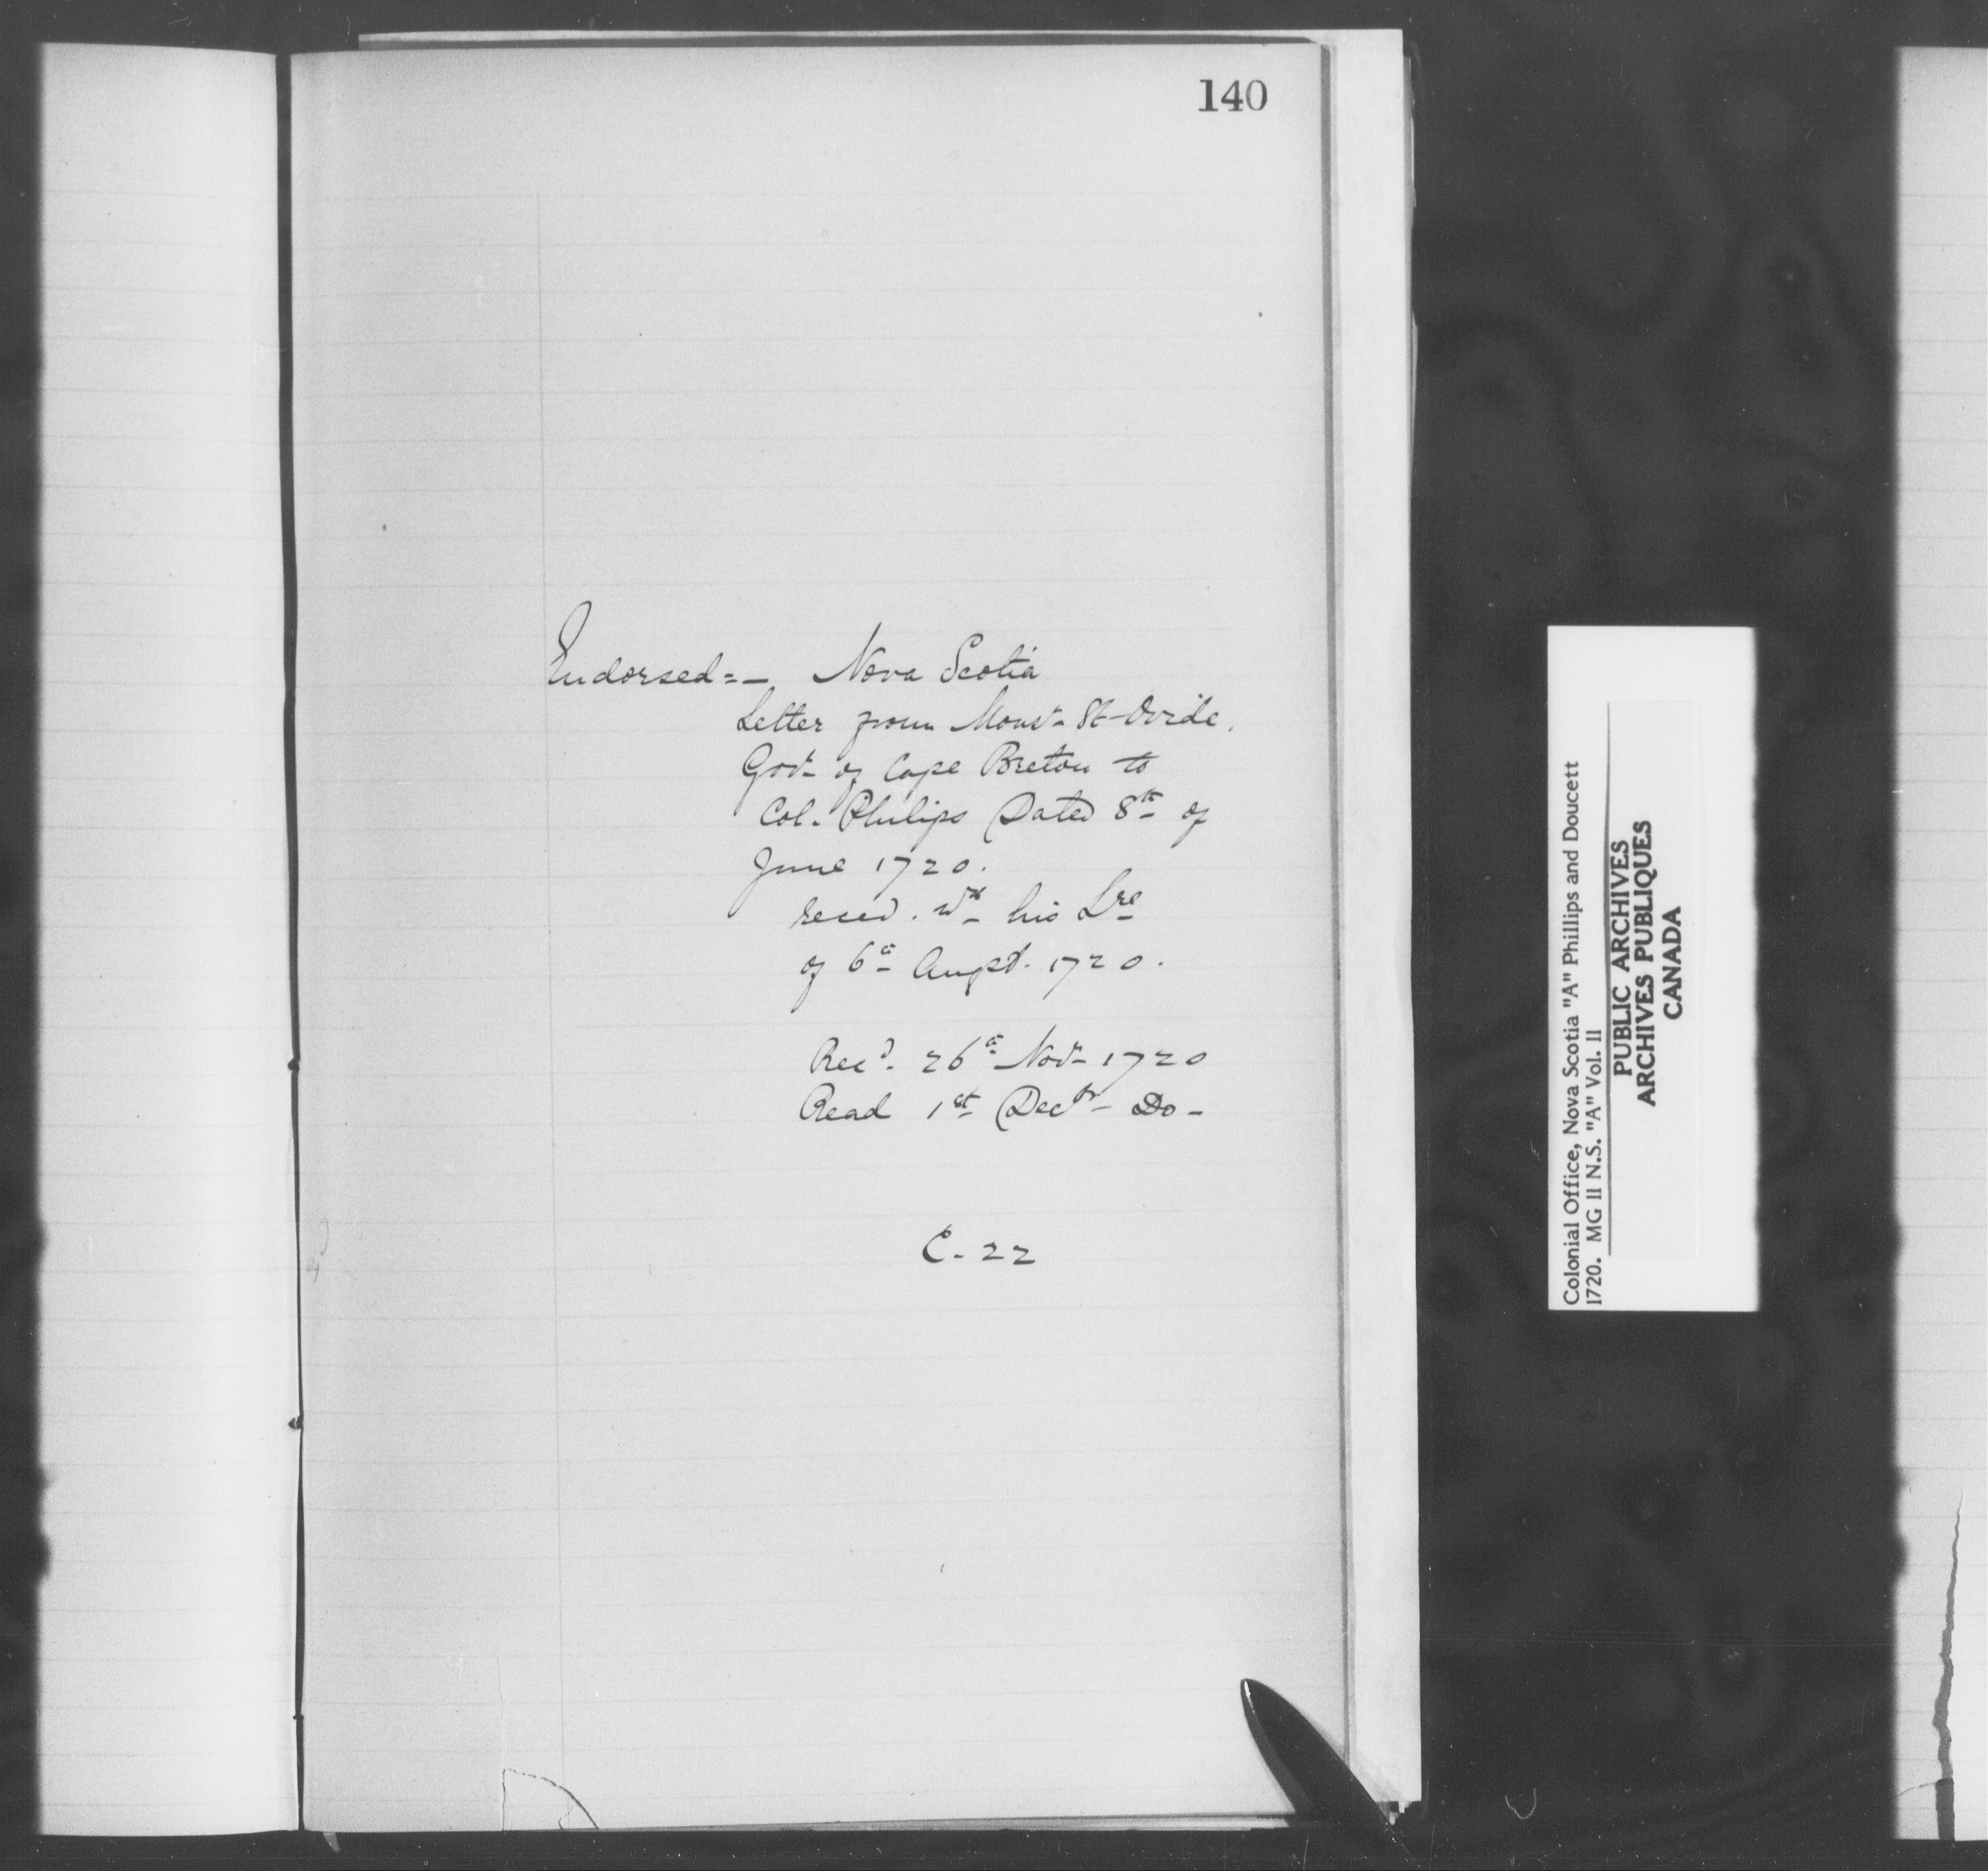 140
Endorsed=- Nova Scotia
Letter from Monsr St-Ovide,
Govr of Cape Breton to
Col. Philips Dated 8th of
June 1720.
reced. wth his Lre
of 6th Augst. 1720.
Recd. 26th Novr 1720
Read 1st Decbr Do-
C-22
Colonial Office, Nova Scotia "A" Phillips and Doucett
1720. MG 11 N.S. "A" Vol. 11
PUBLIC ARCHIVES
ARCHIVES PUBLIQUES
CANADA